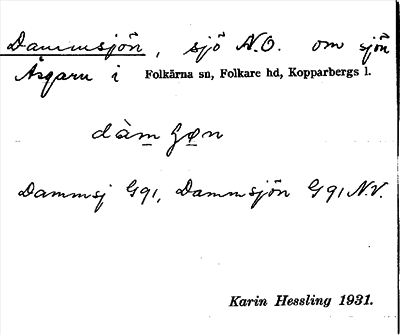 Dammsjön, sjö N.O. om sjön
Åsgarn i Folkärna sn, Folkare hd, Kopparbergs l.
dàm̲ ʃø̲n
Dammsj G91, Dammsjön G91 N.V.
Karin Hessling 1931.